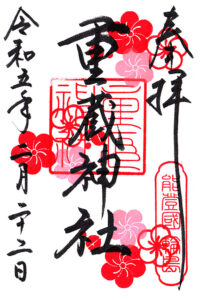 奉拝
能登國輪島
重蔵神社
令和五年二月二十二日